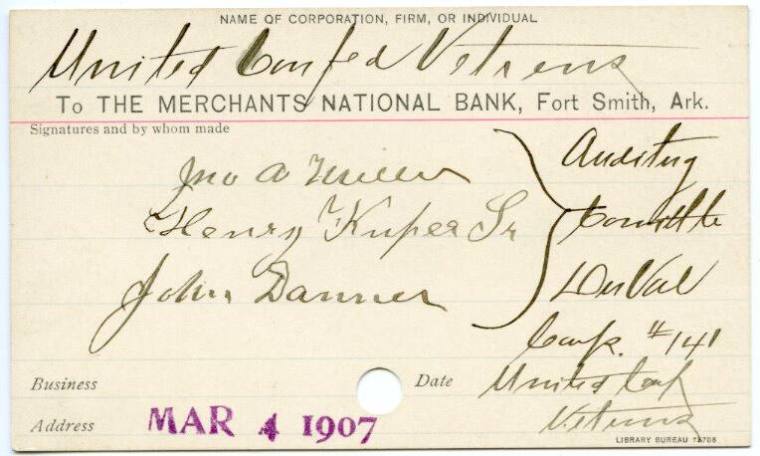 NAME OF CORPORATION, FIRM, OR INDIVIDUAL
United Confed Vetrens
To THE MERCHANTS NATIONAL BANK, Fort Smith, Ark.
Signatures and by whom made
Jno A Miller
Henry Kuper Sr
John Danner
Auditing
Committe
DuVal
Camp. #141
United Conf
Vetrens
Business
Date
Address
MAR 4 1907
LIBRARY BUREAU